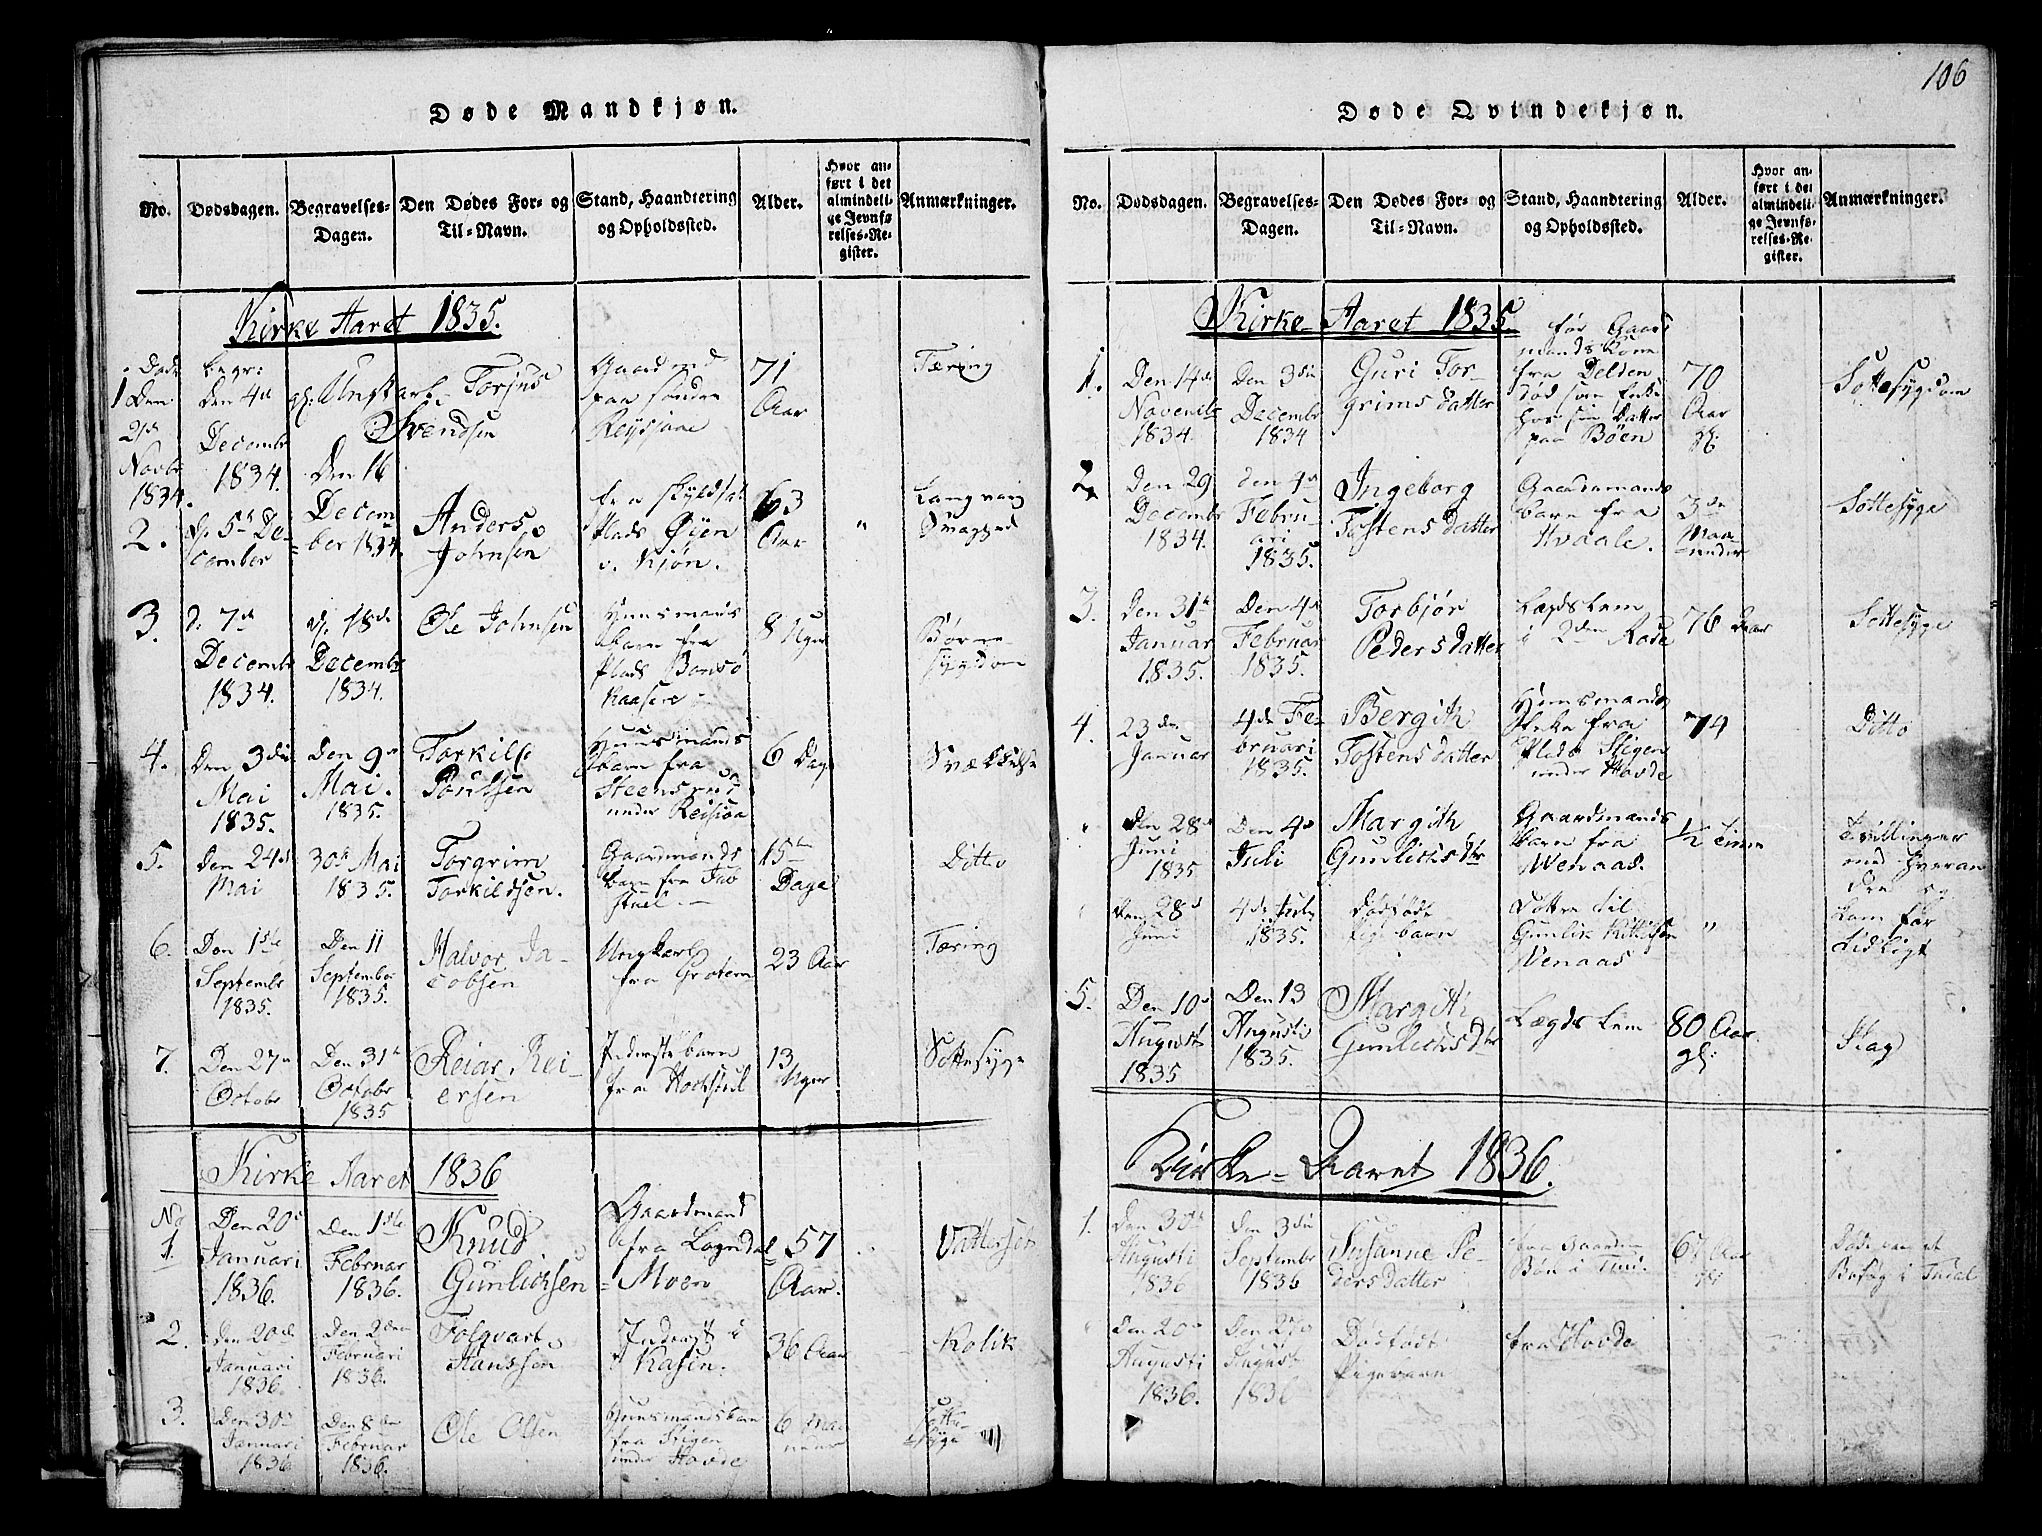 106
Døde Mandkjøn.
No.
Dødsdagen.
Begravelses-
Dagen.
Den Dødes For- og
Til-Navn.
Stand, Haandtering
og Opholdssted.
Alder.
Hvor an-
ført i det
almindeli-
ge Jevnfø-
relses-Re-
gister.
Anmærkninger.
Kirke Aaret 1835.
1 Den
Novbr
1834.
Begr:
Den 4de
Decembr
1834.
Ungkarl Torjus
Svendsen
Gaardmd
paa søndre
Reysjaae
71
Aar
Tæring
2.
d. 5te De-
cember
Den 16
Decem
ber 1834.
Anders
Johnsen
Plads Øijen
v. Kiøn.
63
Aar
"
Langvarig
Svaghed
3.
d. 7de
Decembr
1834.
d. 18de
Decembr
1834.
Ole Johnsen
Huusmands
barn fra
Plads
8 Uger
Børne
sygdom
4.
Den 3die
Mai
1835.
Den 9de
Mai.
1835.
Torkils
Poulsen
Huusmands
barn fra
Steensrud
under Reisiaa
6 Dage
Svækkelse
5.
Den 24de
Mai
30te Mai
1835.
Torgrim
Torkildsen.
Gaardmands
barn fra
15ten
Dage
Ditto
6.
Den 1ste
Septembr
1835.
Den 11
September
1835.
Halvor Ja-
cobsen
Ungkarl
fra Grotern
23 Aar
Tæring
7.
Den 27de
Octobr
Den 31te
Octobr
1835
Reiar Rei-
ersen
Inderstebarn
fra Hochstul
13
Uger
Sottesyge
Kirke Aaret 1836
No
1.
Den 20de
Januari
1836.
Den 1ste
Februar
1836.
Knud
Gunlichsen
Gaardmand
fra Løgndal
Moen
57
Aar.
Vattersot
2.
Den 20de
Januari
1836.
Den 2den
Februari
1836.
Folqvart
Hanssen
Inderst i
Kasin.
36 Aar
Kolik
3.
Den 30te
Januari
1836
Den 8de
Februar
1836.
Ole Olsen
Huusmandsbarn
fra Stigen
under Hovde
6 Maa
neder
Sotte-
syge
Døde Qvindekjøn.
No.
Dødsdagen.
Begravelses-
Dagen.
Den Dødes For- og
Til-Navn.
Stand, Haandtering
og Opholdssted.
Alder.
Hvor an-
ført i det
almindeli-
ge Jevnfø-
relses-Re-
gister.
Anmærkninger.
Kirke-Aaret 1835.
1.
Den 14de
Novembr
1834.
Den 3die
Decembr
1834
Guri Tor-
grims datter
før Gaard
mands Kone
fra Delden
død som Enke
hos sin Datter
paa Bøen
70
Aar
gl:
Sottesygdom
2
Den 29
Decembr
1834.
Den 4de
Febru-
ari
1835.
Ingeborg
Tostens datter
Gaardmands
barn fra
Hvaale.
3de
Maa-
neder
Sottesyge
3.
Den 31te
Januar
1835.
Den 4de
Februar
1835.
Torbjør
Pedersdatter
Lægdslem
i 2den Rode
76 Aar
Sottesyge
4.
23de
Januar
4de Fe-
bruari
1835.
Bergith
Tostens datter
Huusmands
Enke fra
Plads Stigen
under Hovde
74
Ditto
"
Den 28de
Juni
1835
Den 4de
Juli
Margith
Gunlichs dtr
Gaardmands
barn fra
Wenaas.
1/2 Time
Tvillinger
med hveran
dre og
kom før
tidligt
"
Den 28de
Juni
4de July
1835.
dødfødt
Pigebarn
Datter til
Gunlik Kittilsen
Wenaas
"
5.
Den 10de
August
1835
Den 13
Augusti
1835.
Margith
Gunlichsdtr
Lægdslem
80 Aar
gl:
Slag
Kirke-Aaret 1836.
1.
Den 30te
Augusti
1836
Den 3die
Septembr
1836
Susanne Pe-
dersdatter
fra Gaarden
Bøn i Tind.
67 Aar
gl:
Døde
Besøg i Tudal
"
Den 20de
Augusti
1836.
Den 27de
August
1836
Dødfødt
Pigebarn
fra Hovde